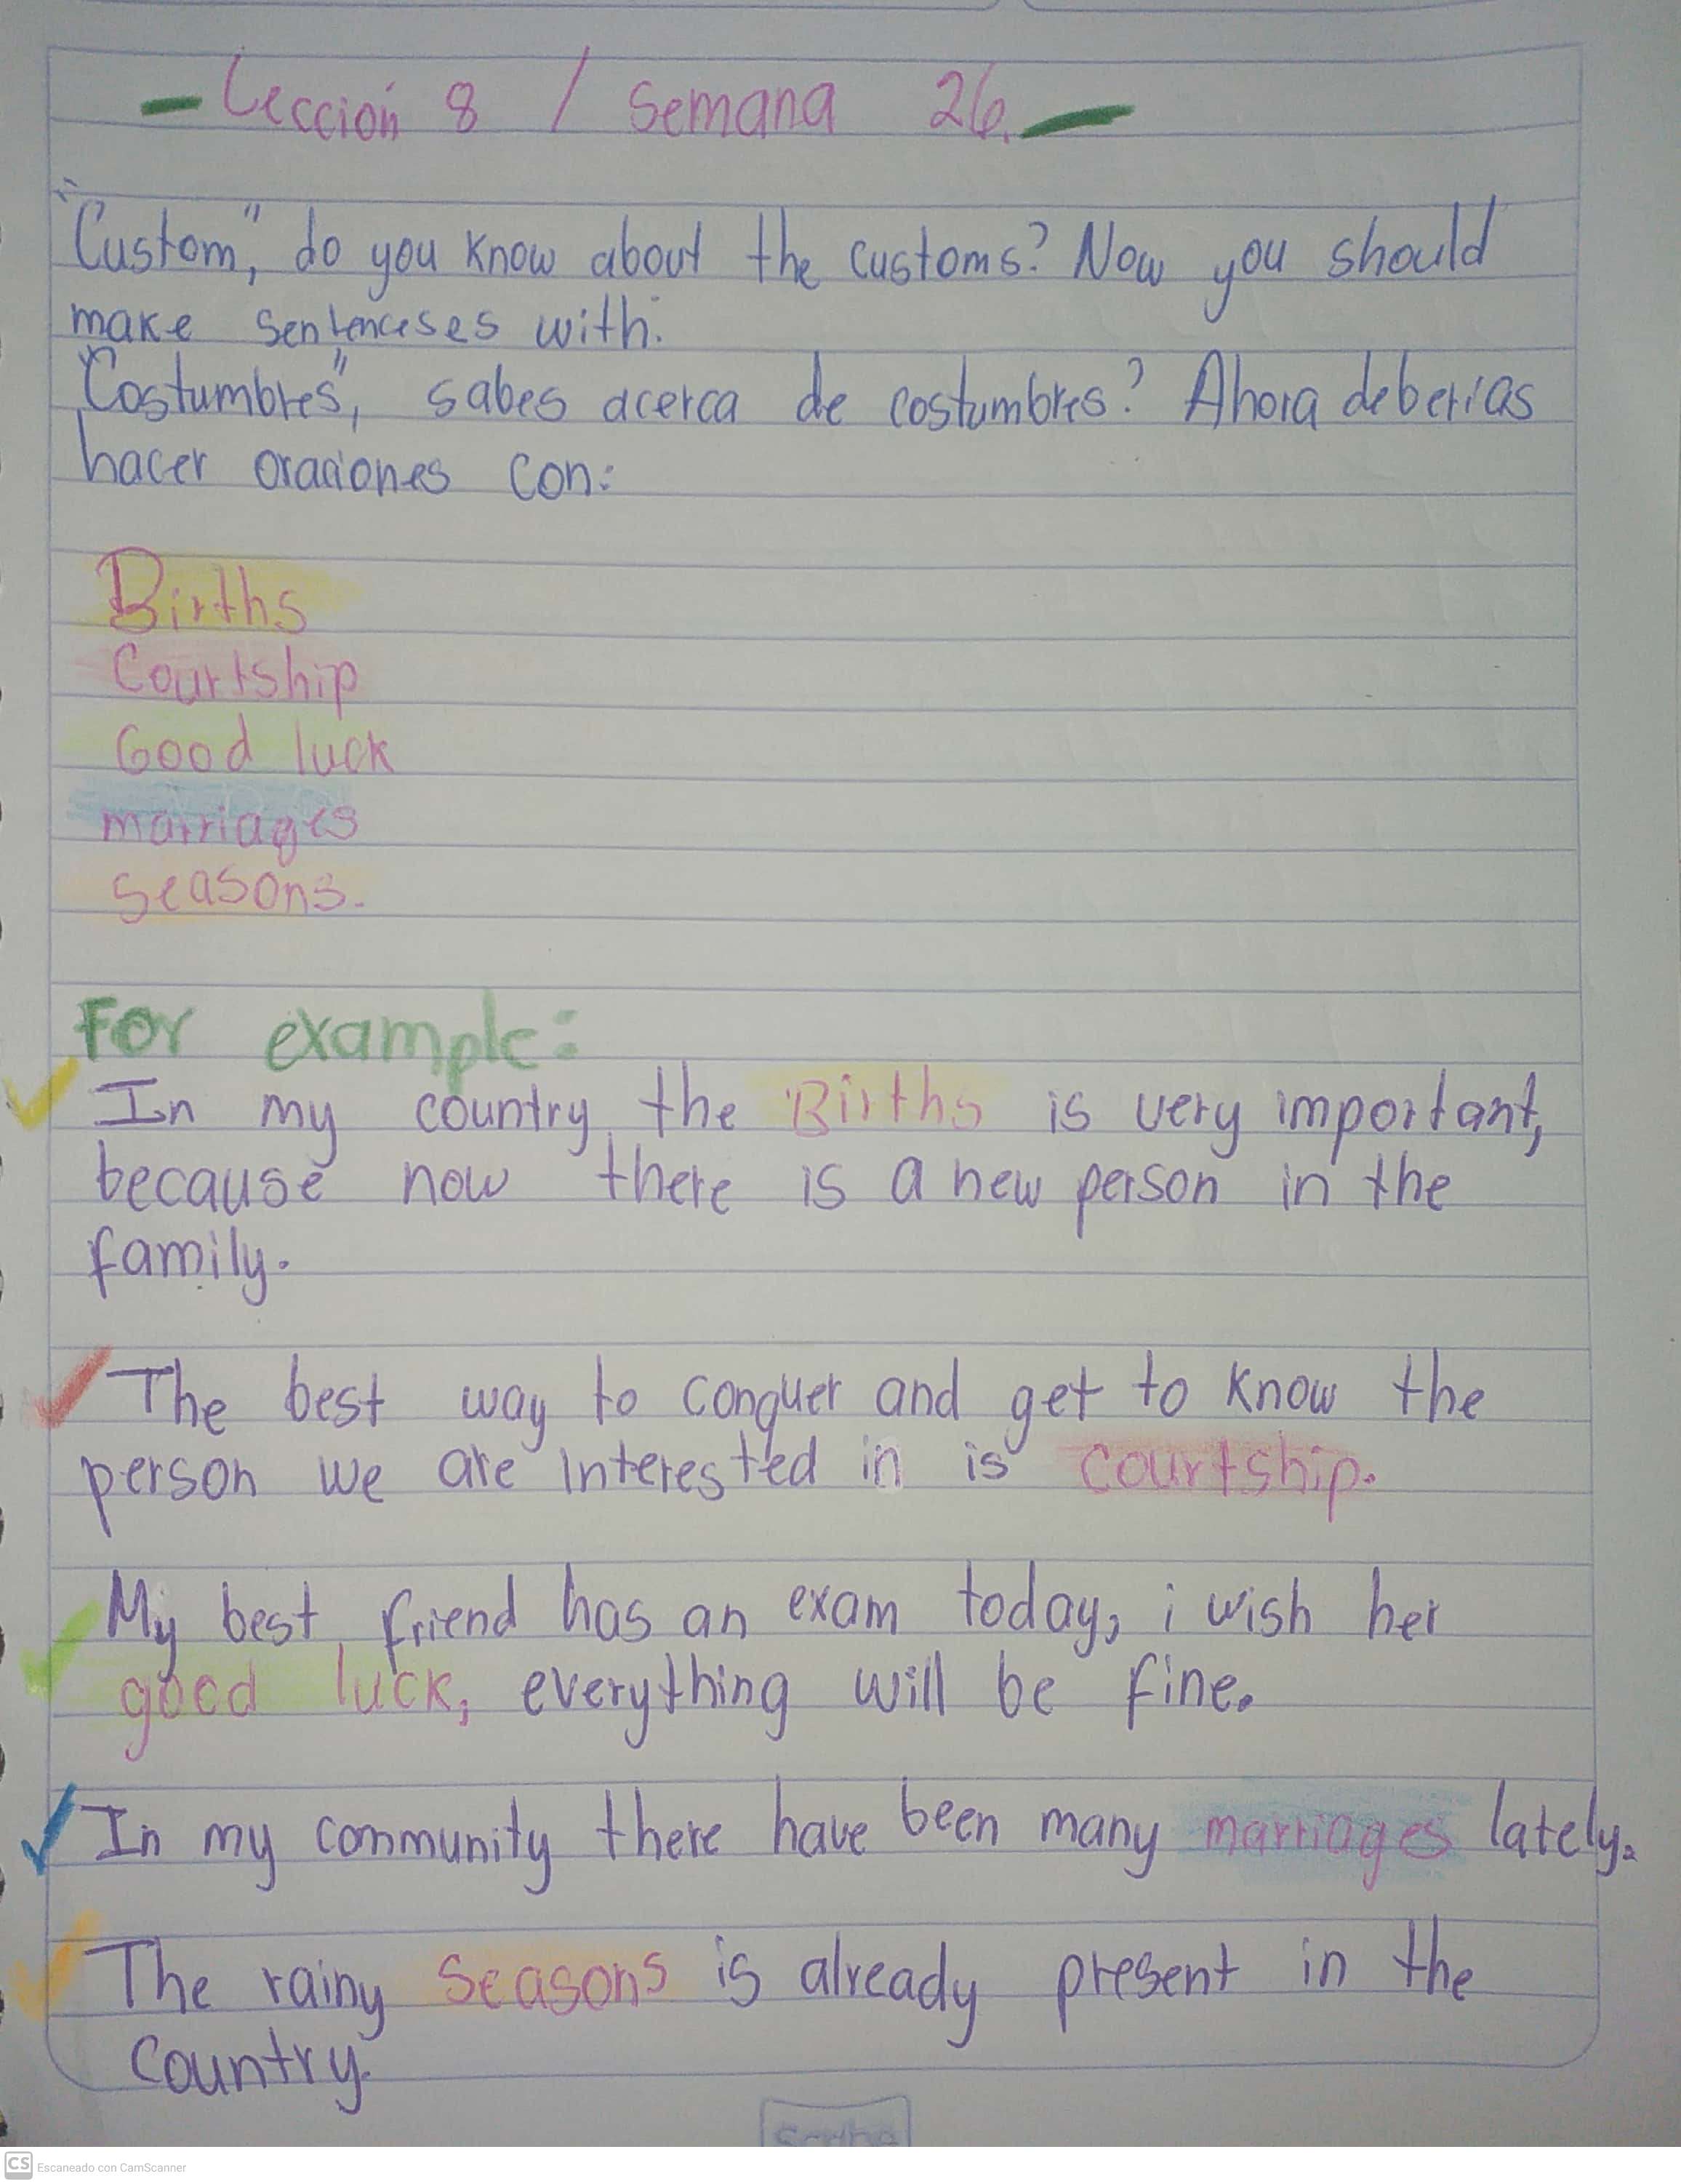 - Lección 8 / Semana 26. -
"Custom", do you know about the customs? Now you should
make sentenceses with:
"Costumbres", sabes acerca de costumbres? Ahora deberías
hacer oraciones con:
Births
Courtship
Good luck
marriages
seasons.
For example:
In my country the Births is very important,
because now there is a new person in the
family.
The best way to conquer and get to know the
person we are interested in is courtship.
My best friend has an exam today, i wish her
good luck, everything will be fine.
In my community there have been many marriages lately.
The rainy seasons is already present in the
country.
Scribe
CS Escaneado con CamScanner